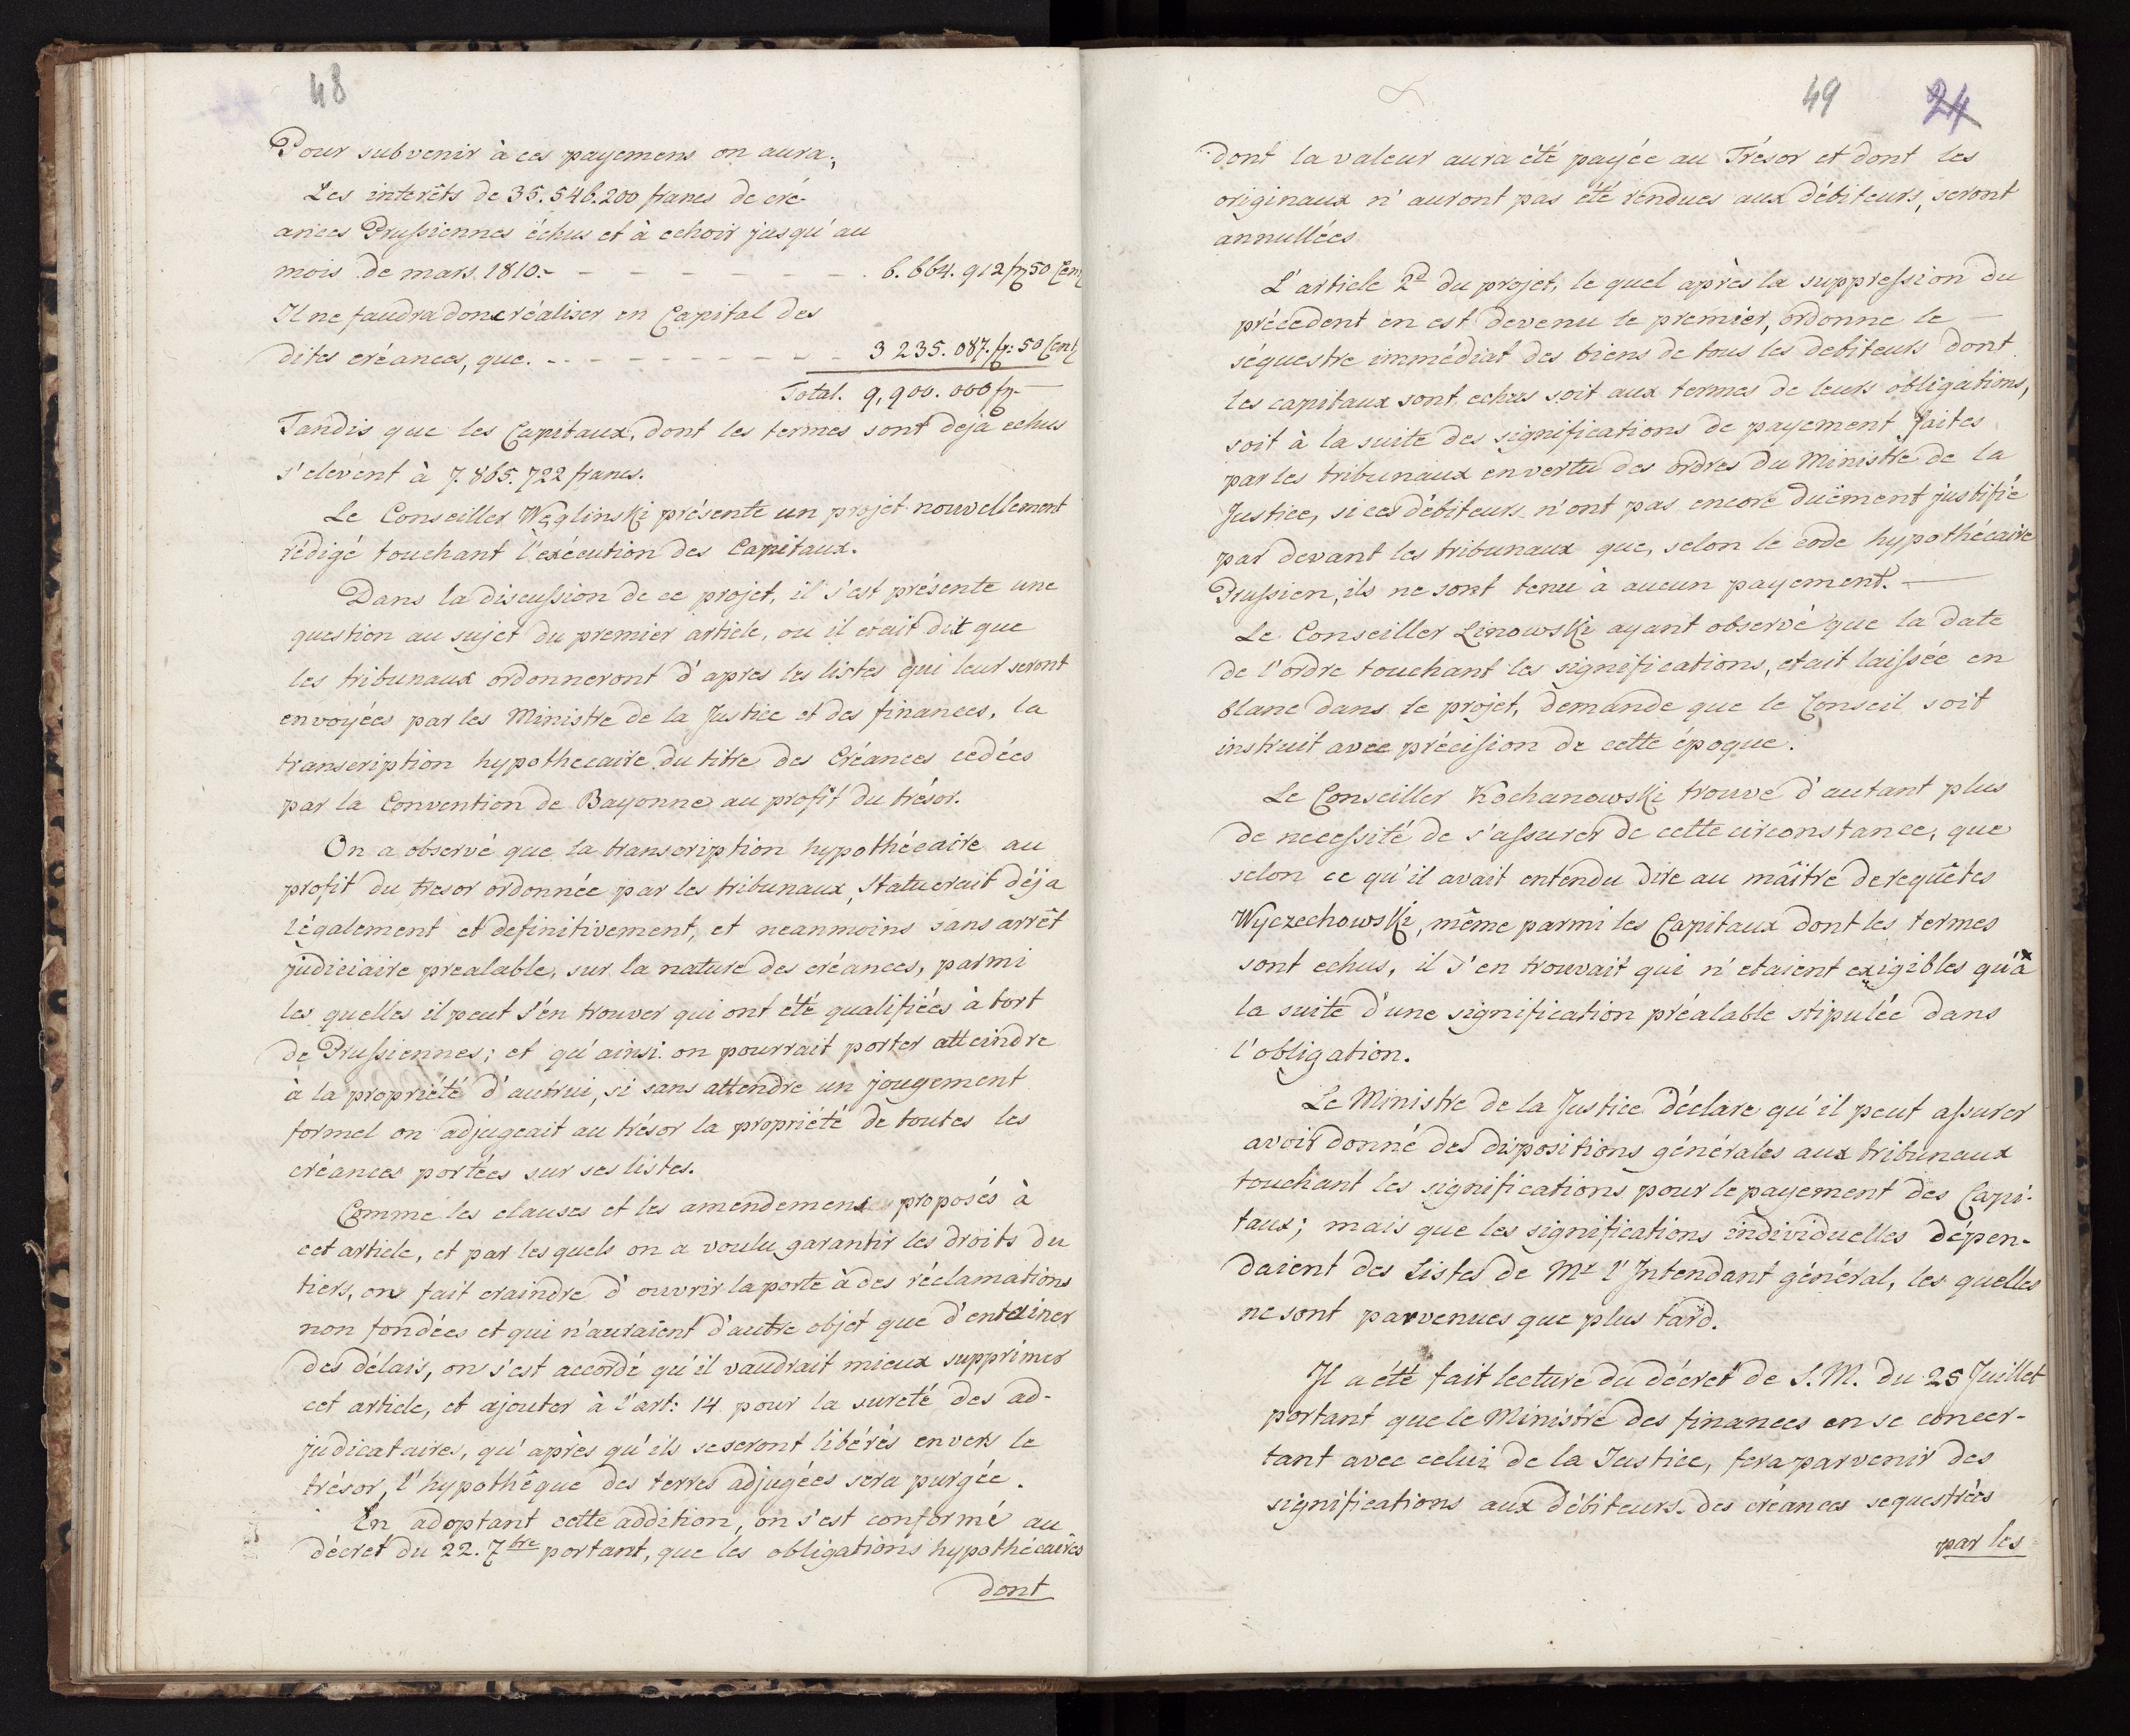 48
Pour subvenir à ces payemens on aura,
Les interêts de 35.546.200 francs de cré-
ances Prussiennes échus et à echoir jusqu'au
mois de mars 1810.- - - - - - - - - - 6.664.912 fr 50 Cent
Il ne faudra donc réaliser en Capital des
dites créances, que. - - - - - - - - - - 3 235.087. fr: 50 Cent
Total. 9,900.000 fr -
Tandis que les Capitaux, dont les termes sont deja echus
s'elevent à 7.865.722 francs.
Le Conseiller Węglinski présente un projet nouvellement
rédigé touchant l'exécution des Capitaux.
Dans la discussion de ce projet, il s'est présente une
question au sujet du premier article, ou il etait dit que
les tribunaux ordonneront d'apres les listes qui leur seront
envoyées par les Ministre de la Justice et des finances, la
transcription hypothecaire du titre des Créances cedées
par la Convention de Bayonne au profit du trésor.
On a observé que la transcription hypothécaire au
profit du tresor ordonnée par les tribunaux, statuerait déja
légalement et definitivement, et neanmoins sans arrêt
judiciaire prealable, sur la nature des créances, parmi
les quelles il peut s'en trouver qui ont été qualifiées à tort
de Prussiennes; et qu'ainsi on pourrait porter atteindre
à la propriété d'autrui, si sans attendre un jougement
formel on adjugeait au trésor la propriété de toutes les
créances portées sur ses listes.
Comme les clauses et les amendemens proposés à
cet article, et par lesquels on a voulu garantir les droits du
tiers, ons fait craindre d'ouvrir la porte à des réclamations
non fondées et qui n'auraient d'autre objét que d'entrainer
des délais, on s'est accordé qu'il vaudrait mieux supprimer
cet article, et ajouter à l'art: 14 pour la sureté des ad-
judicataires, qu'après qu'ils se seront libérés envers le
trésor, l'hypothêque des terres adjugées sera purgée.
En adoptant cette addition, on s'est conformé au
décret du 22. 7bre portant, que les obligations hypothécaires
dont
49 24
dont la valeur aura été payée au Trésor et dont les
originaux n'auront pas été rendues aux débiteurs, seront
annullées
L'article 2d du projet, le quel après la suppression du
précedent en est devenu le premier, ordonne le -
séquestre immédiat des biens de tous les debiteurs dont
les capitaux sont echus soit aux termes de leurs obligations,
soit à la suite des significations de payement faites
par les tribunaux en vertu des ordres du Ministre de la
Justice, si ces débiteurs n'ont pas encore duëment justifié
par devant les tribunaux que, selon le code hypothécaire
Prussien, ils ne sont tenu à aucun payement. -
Le Conseiller Linowski ayant observé que la date
de l'ordre touchant les significations, etait laissée en
blanc dans le projet, demande que le Conseil soit
instruit avec précision de cette époque.
Le Conseiller Kochanowski trouve d'autant plus
de necessité de s'assurer de cette circonstance, que
selon ce qu'il avait entendu dire au maître de requêtes
Wyczechowski, même parmi les Capitaux dont les termes
sont echus, il s'en trouvait qui n'etaient exigibles qu'à
la suite d'une signification préalable stipulée dans
l'obligation.
Le Ministre de la Justice déclare qu'il peut assurer
avoir donné des dispositions générales aux tribunaux
touchant les significations pour le payement des Capi-
taux; mais que les significations individuelles dépen-
daient des Listes de Mr l'Intendant général, les quelles
ne sont parvenues que plus tard.
Il a été fait lecture du décret de S.M. du 25 Juillet
portant que le Ministre des finances en se concer-
tant avec celui de la Justice, fera parvenir des
significations aux débiteurs des créances sequestrées
par les